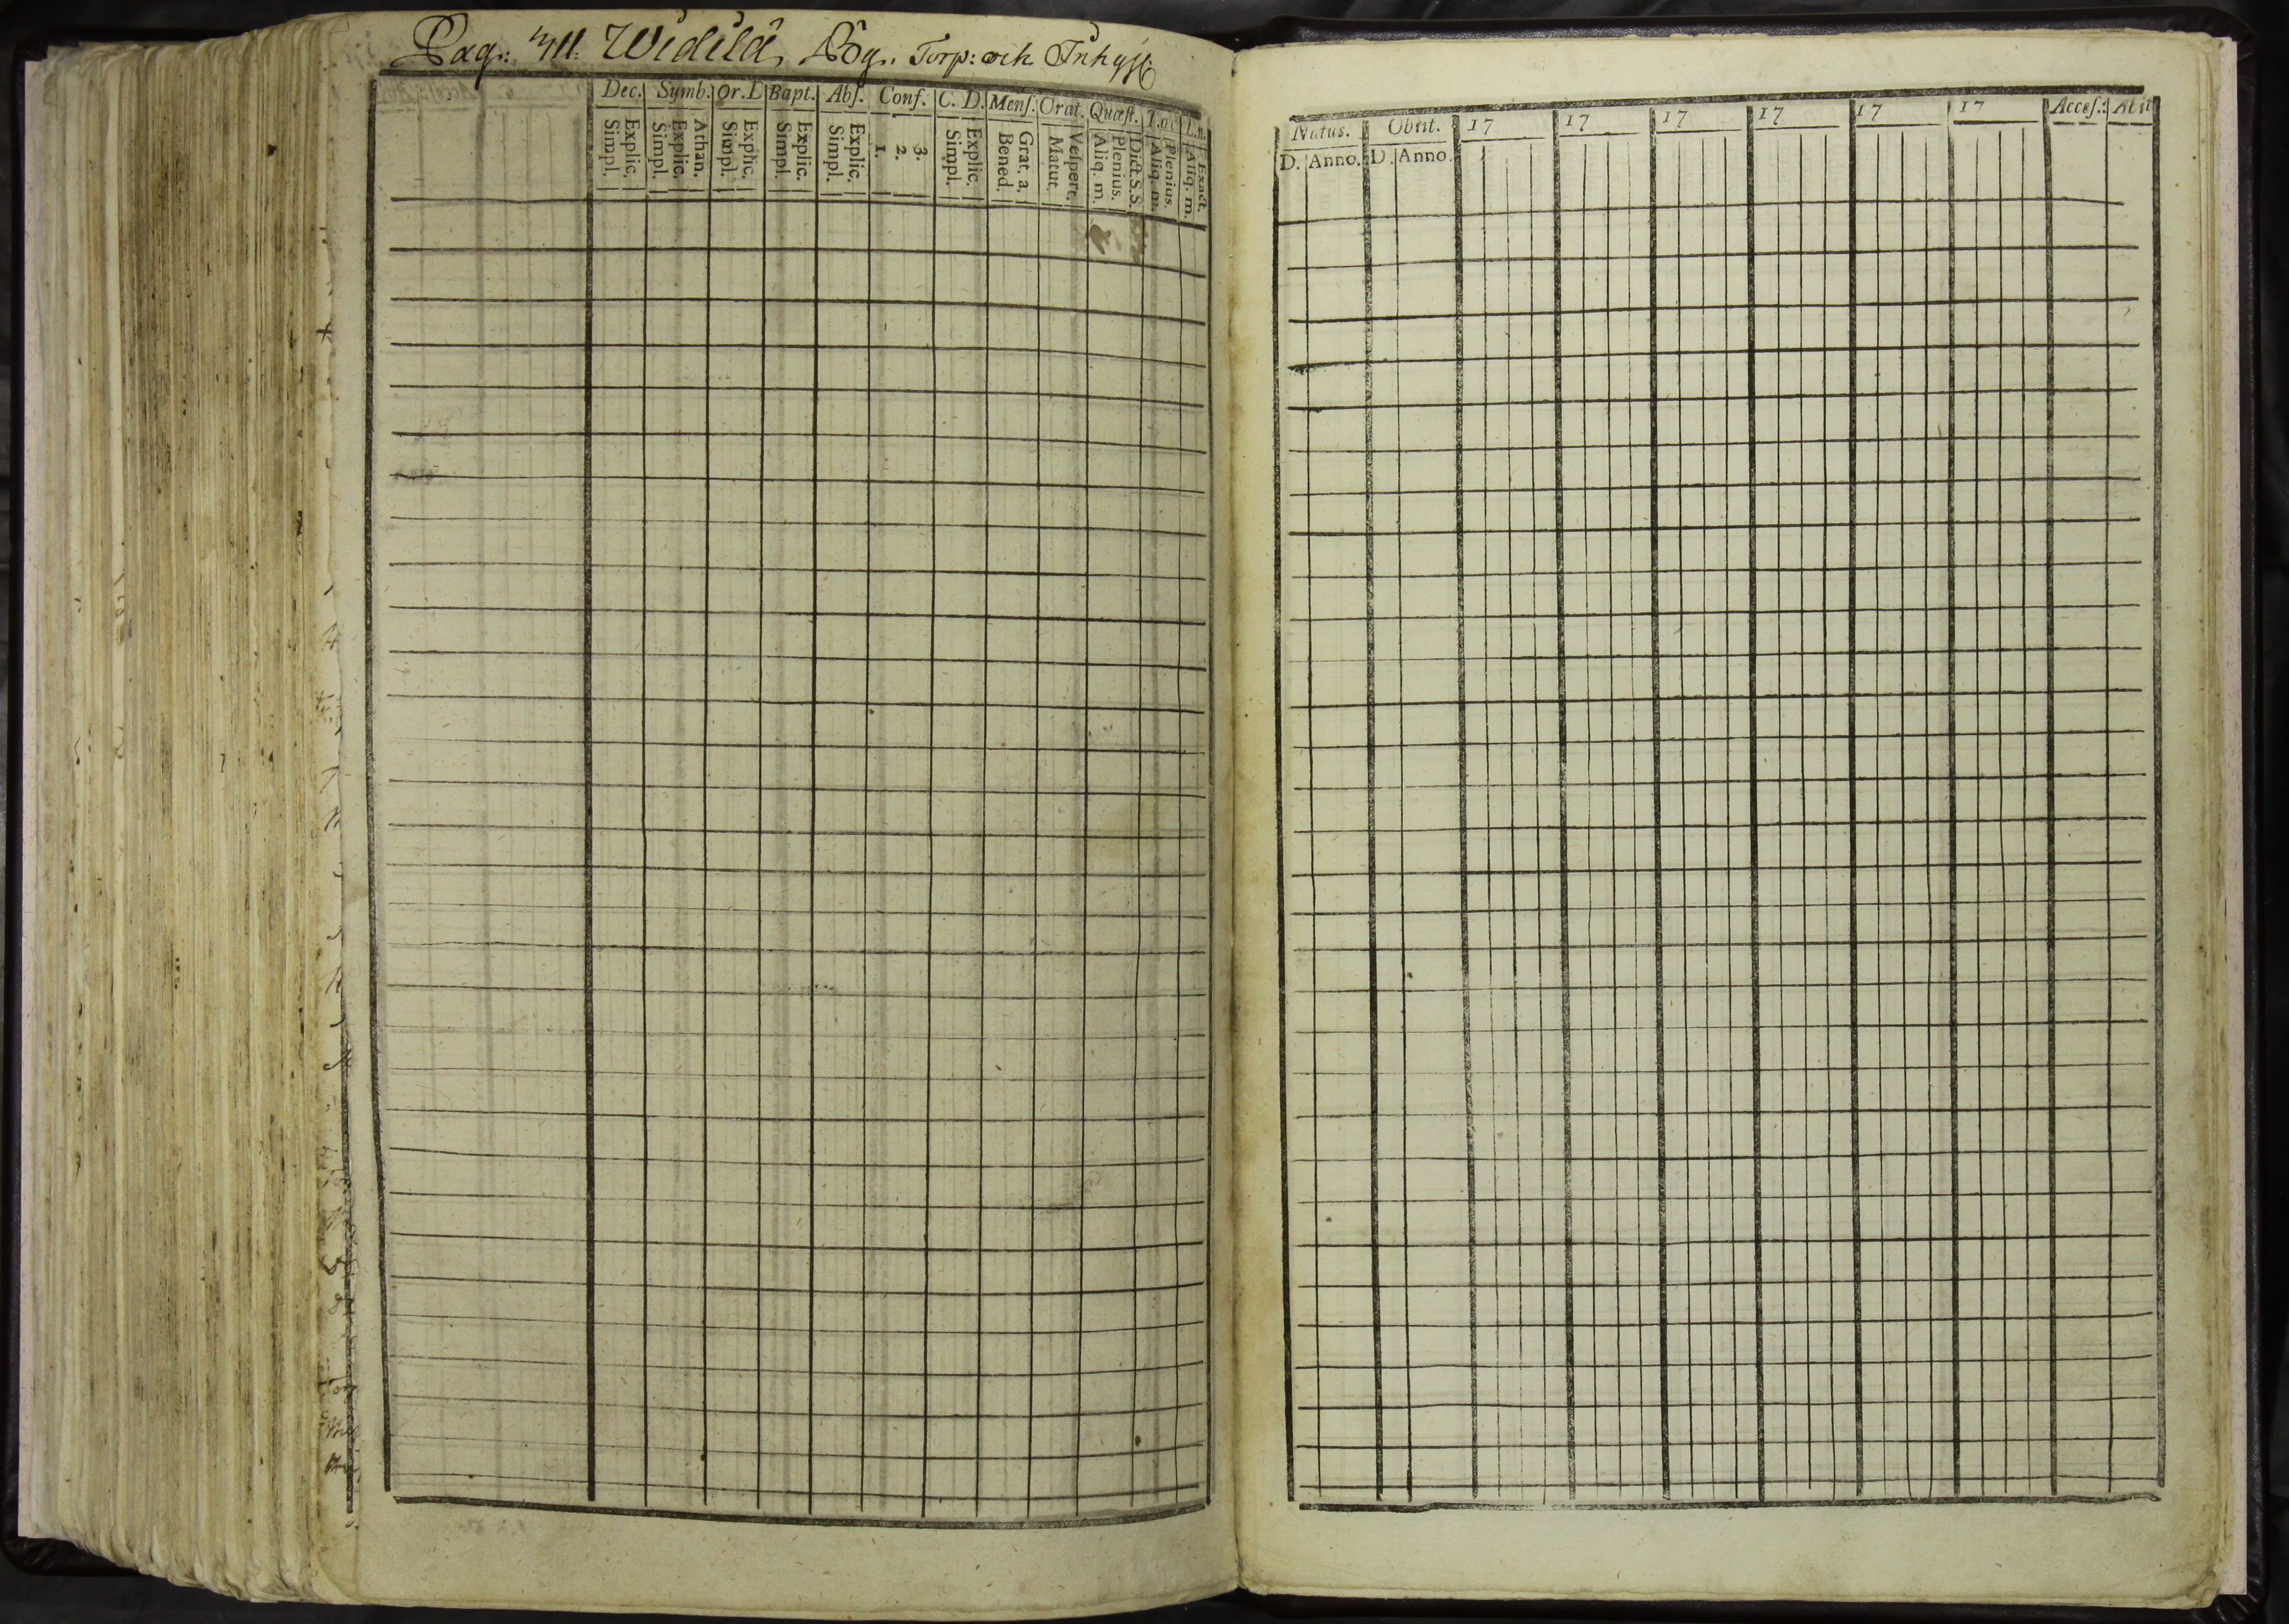 Pag: Widilä, Torp: och Inhys:
Dec. Symb. Or. D Bapt. Abs. Conf. C. D. Mens. Orat. Quæst. L.n.
Explic. Simpl. Athan. Explic. Simpl. Explic. Simpl. Explic. Simpl. Explic. Simpl. 3. 2. 1. Explic. Simpl. Grat. a. Bened. Vespert. Matut. Dict. S.S. Plenius. Aliq. m. Plenius. Aliq. m. Exact. Aliq. m.
Natus. Obiit. 17 17 17 17 17 17 Acces.: Abit
D. Anno. D. Anno.